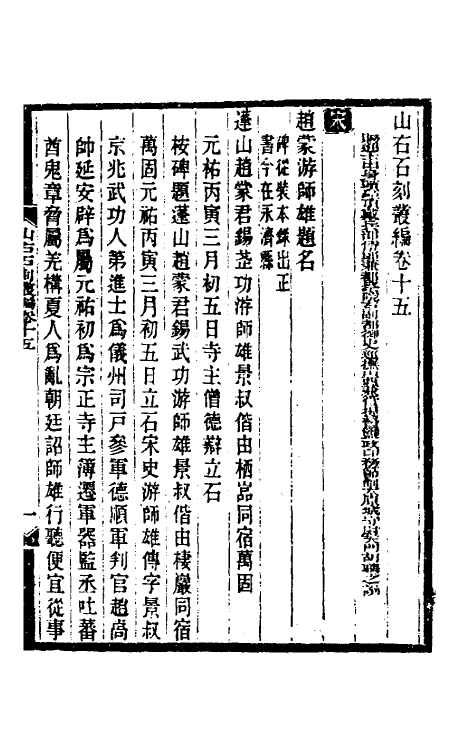 山右石刻叢編卷十五
宋
趙蒙游師雄題名
碑從裝本錄出正
書今在永濟縣
蓬山趙蒙君錫武功游師雄景叔偕由栖岩同宿萬固
元祐丙寅三月初五日寺主僧德辯立石
桉碑題蓬山趙蒙君錫武功游師雄景叔偕由棲巖同宿
萬固元祐丙寅三月初五日立石宋史游師雄傳字景叔
京兆武功人第進士爲儀州司戶參軍德順軍判官趙卨
帥延安辟爲屬元祐初爲宗正寺主簿遷軍器監丞吐蕃
酋鬼章脅屬羌構夏人爲亂朝廷詔師雄行聽便宜從事
山右石刻叢編卷十五
一